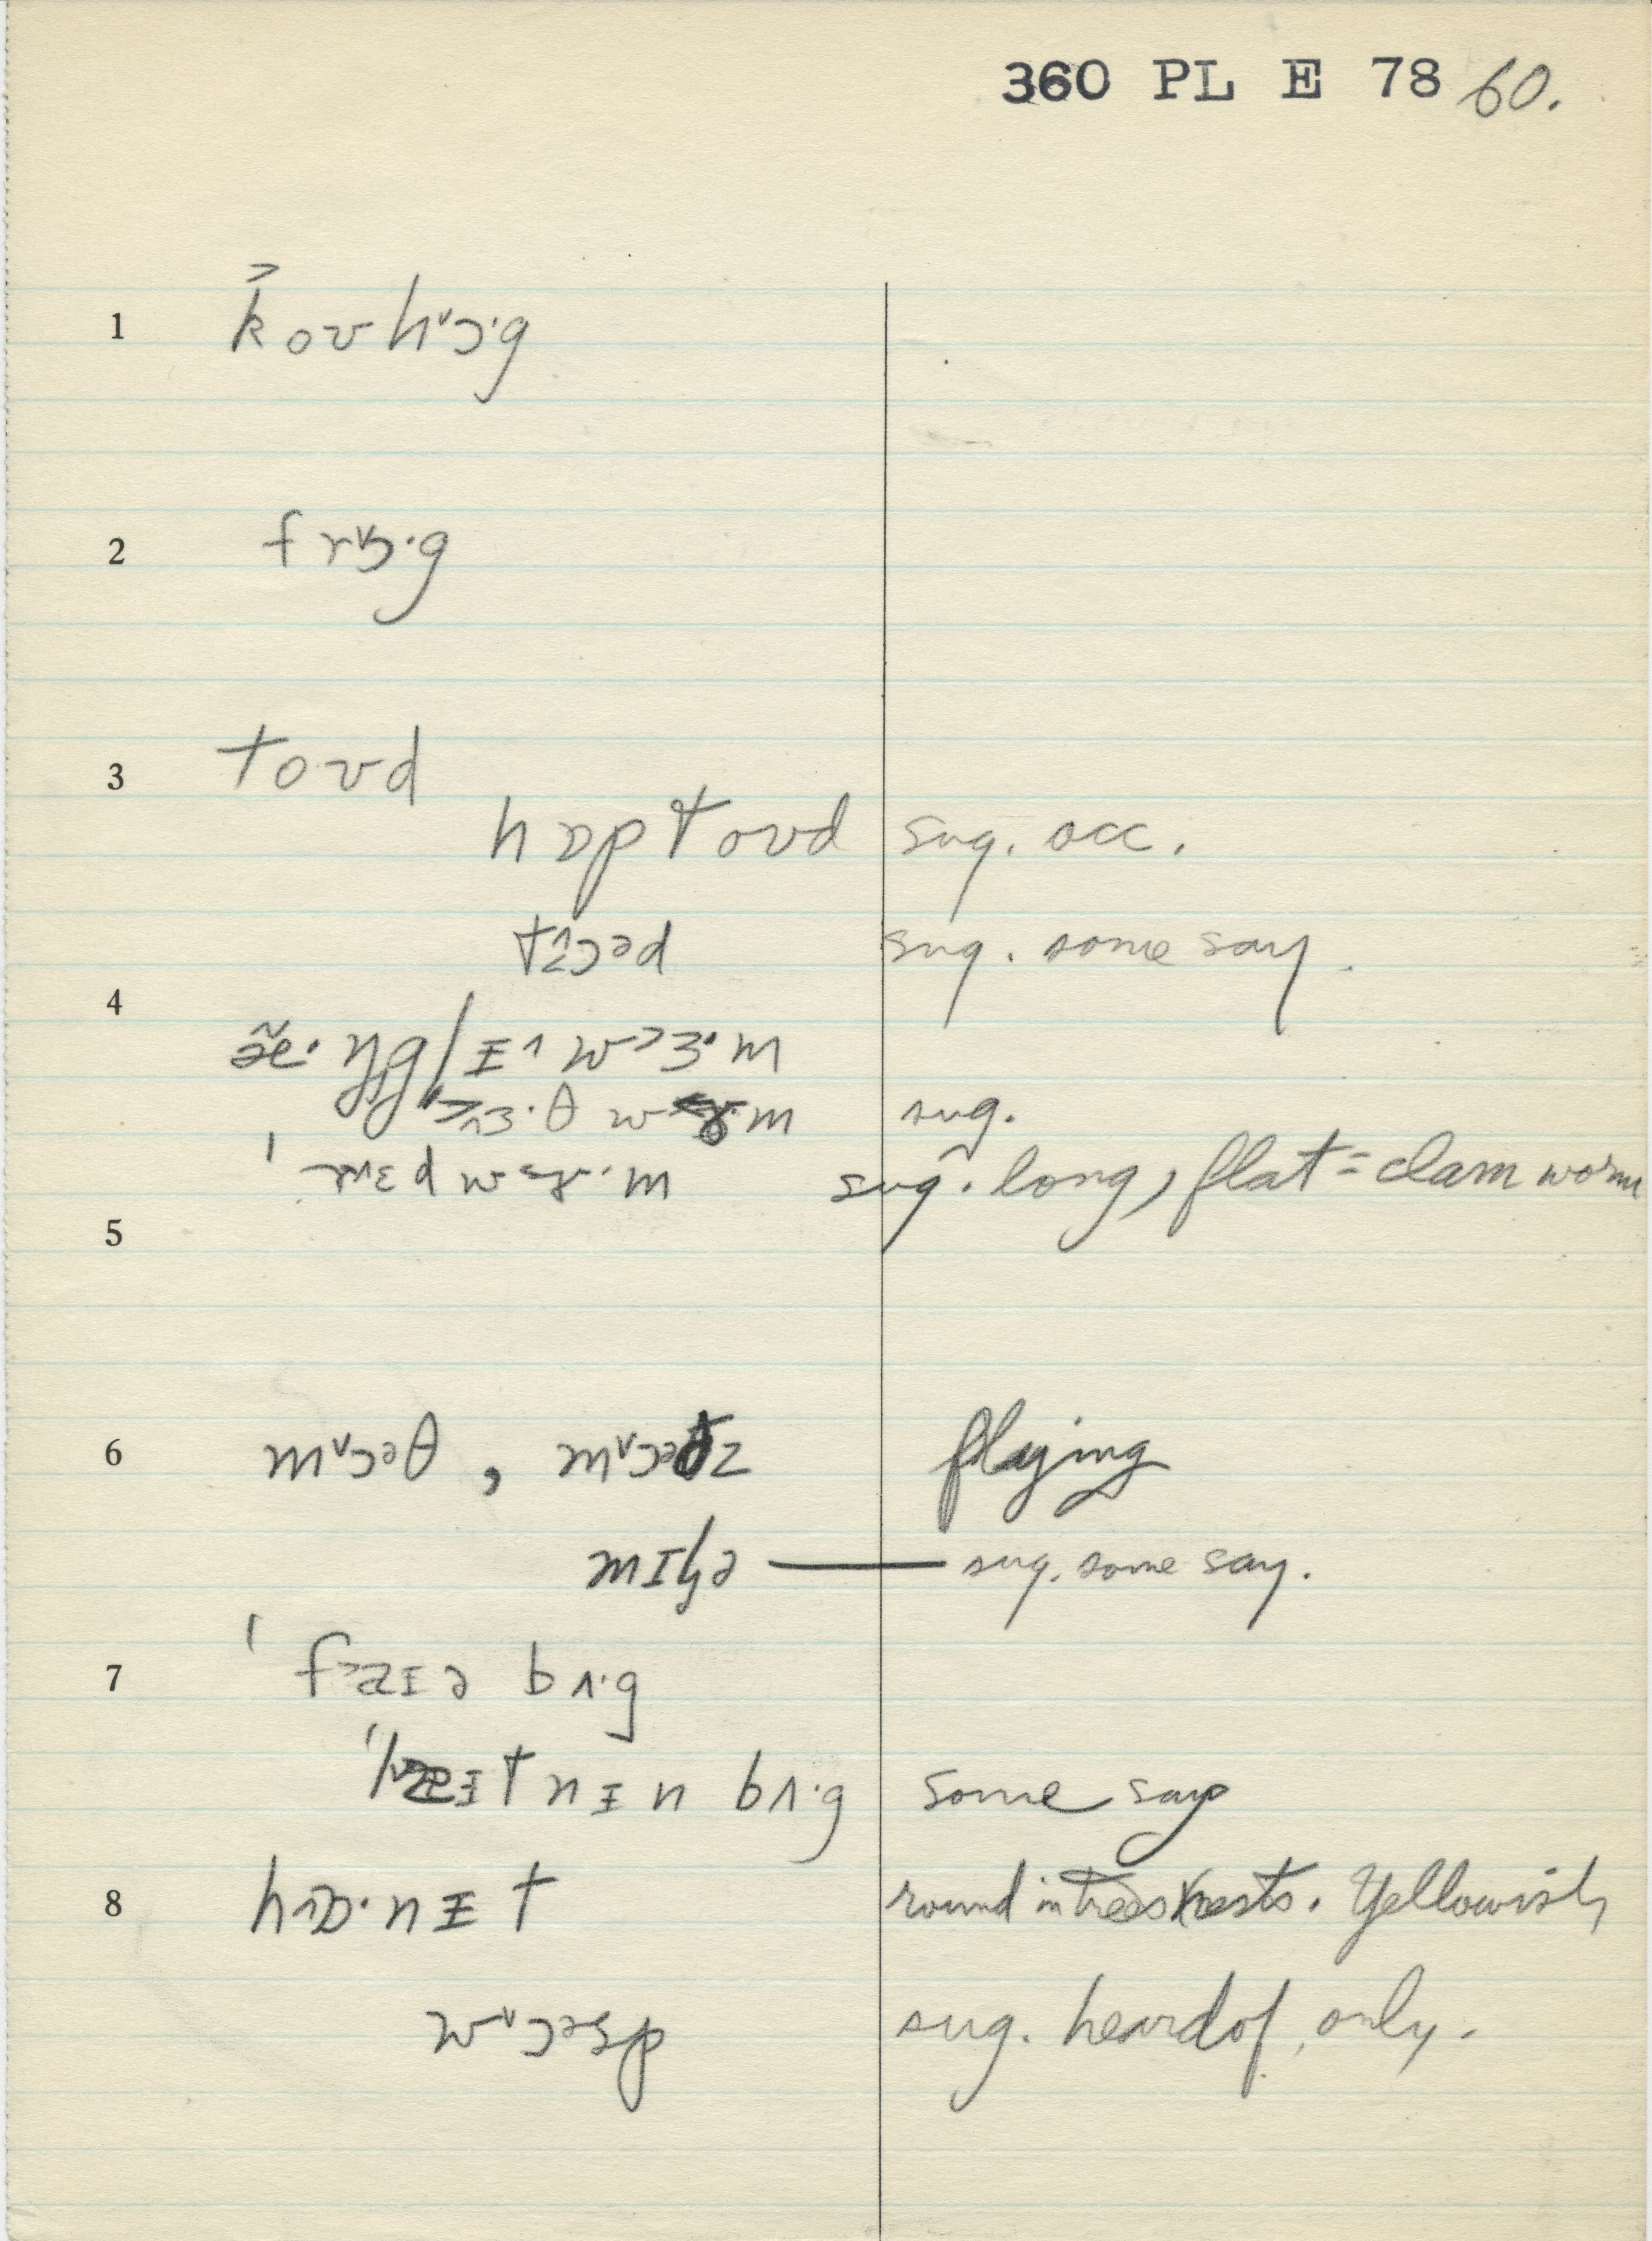 360 PL E 78 60.
1 k˃oʊhɔ˅·g
2 frɔ˅·g
3 toʊd
hɒptoʊd sug. occ.
tɔəd sug. some say.
4 æ̃·ŋg/ɪ˄ w˃ɜ·m
ɜ·θ w m sug.
ˈrɛd w m sug. long, flat = clam worm
5
6 mɔ˅əθ, mɔ˅əðz flying
mɪlɚ — sug. some say.
7 ˈfaɪə bʌ·g
ɪtnɪn bʌ·g some say
8 hɒ·nɪt round in trees nests. Yellowish
wɔ˅əsp sug. heard of, only.